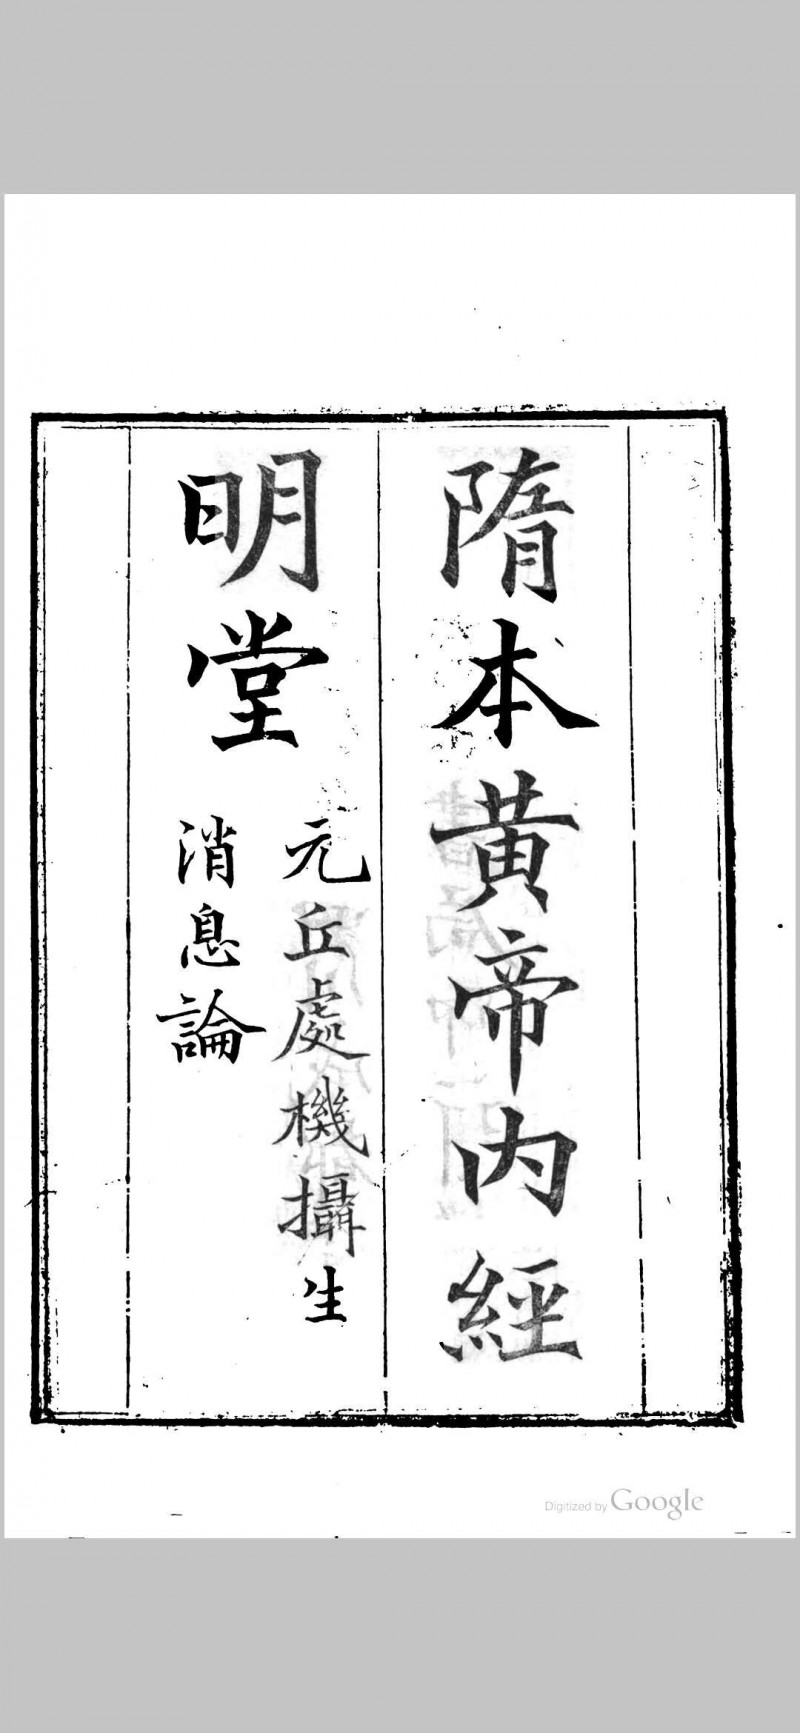 隋本黄帝内經
明堂
元丘處機攝生
消息論
Digitized by Google